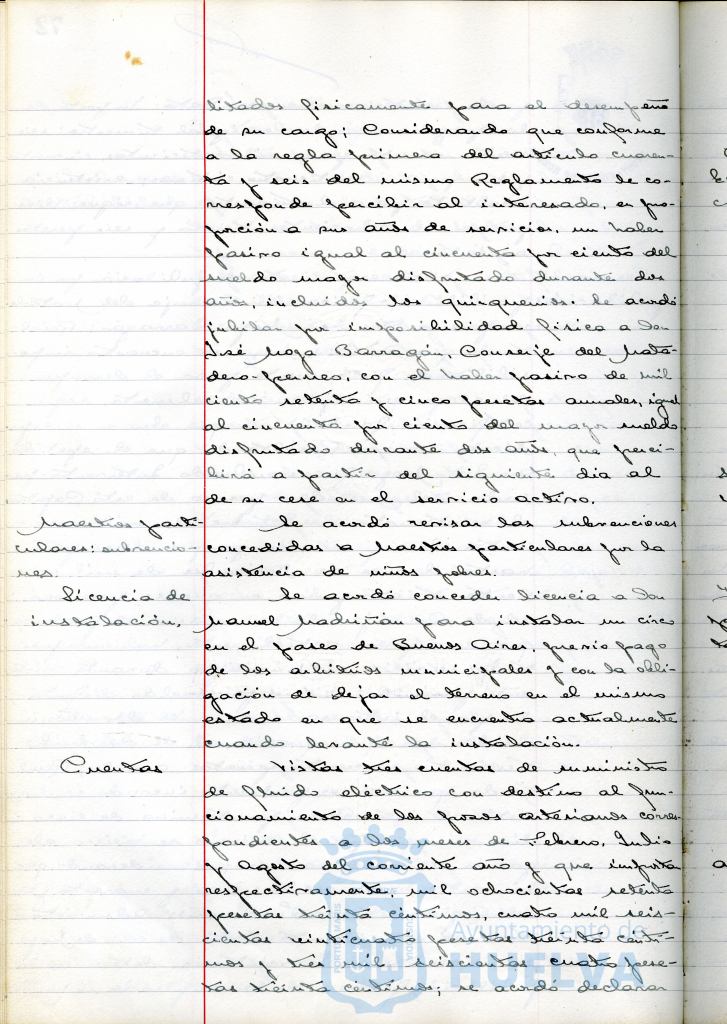 litados fisicamente para el desempeño
de su cargo; Considerando que conforme
a la regla primera del articulo cuaren-
ta y seis del mismo Reglamento le co-
rresponde percibir al interesado, en pro-
porción a sus años de servicios, un haber
pasivo igual al cincuenta por ciento del
sueldo mayor disfrutado durante dos
años, incluidos los quinquenios. Se acordó
jubilar por imposibilidad fisica a don
José Moya Barragán, Conserje del Mata-
dero-perneo, con el haber pasivo de mil
ciento setenta y cinco pesetas anuales, igual
al cincuenta por ciento del mayor sueldo
disfrutado durante dos años, que perci-
birá a partir del siguiente dia al
de su cese en el servicio activo.
Maestros parti-
culares: subvencio-
nes.
Se acordó revisar las subvenciones
concedidas a Maestros particulares por la
asistencia de niños pobres.
Licencia de
instalación.
Se acordó conceder licencia a don
Manuel para instalar un circo
en el paseo de Buenos Aires, previo pago
de los arbitrios municipales y con la obli-
gación de dejar el terreno en el mismo
estado en que se encuentra actualmente
cuando levante la instalación.
Cuentas
Vistas tres cuentas de suministro
de fluido eléctrico con destino al fun-
cionamiento de los pozos artesianos corres-
pondientes a los meses de Febrero, Julio
y Agosto del corriente año y que importan
respectivamente, mil ochocientas setenta
pesetas treinta céntimos, cuatro mil seis-
cientas veinticuatro pesetas treinta cénti-
mos y tres mil seiscientas cuatro pese-
tas treinta céntimos; se acordó declarar
Ayuntamiento de
HUELVA